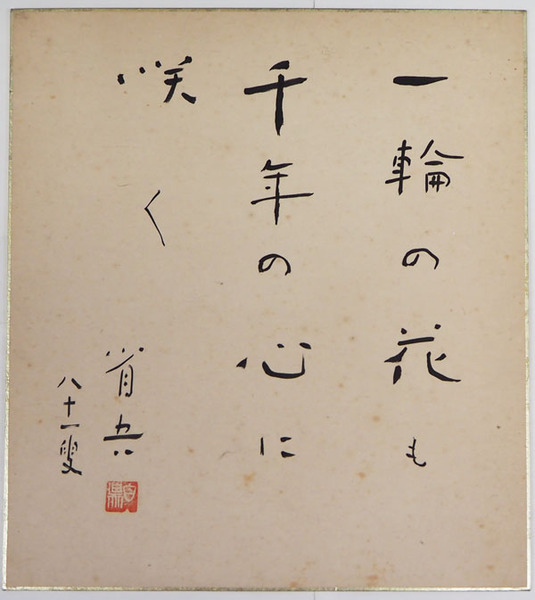 一輪の花も
千年の心に
咲く
省吾
八十一叟